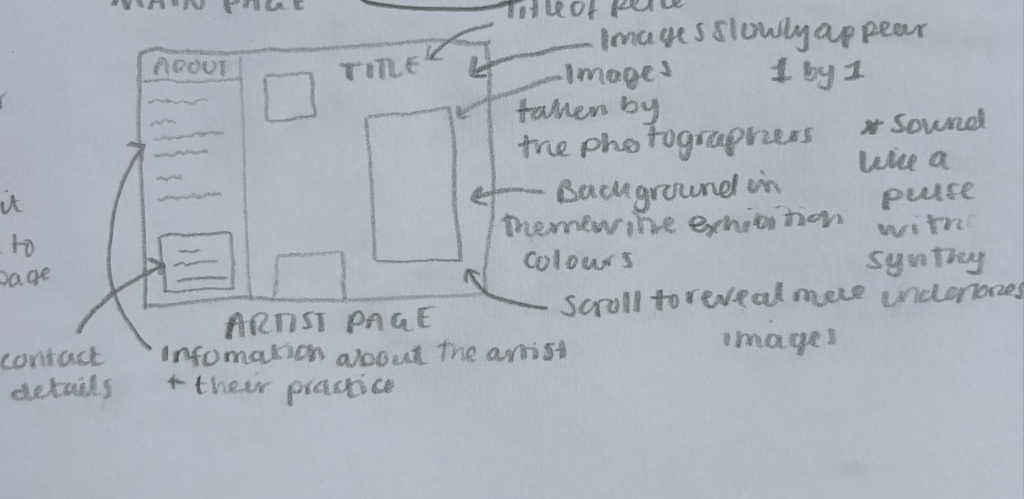 MAIN PAGE
Title of piece
Images slowly appear
1 by 1
ABOUT
TITLE
Images
taken by
the photographers
* Sound
like a
pulse
with
synthy
undertones
Background in
theme w/ the exhibition
colours
Scroll to reveal more
images
it
to
page
ARTIST PAGE
contact
details
Infomation about the artist
+ their practice